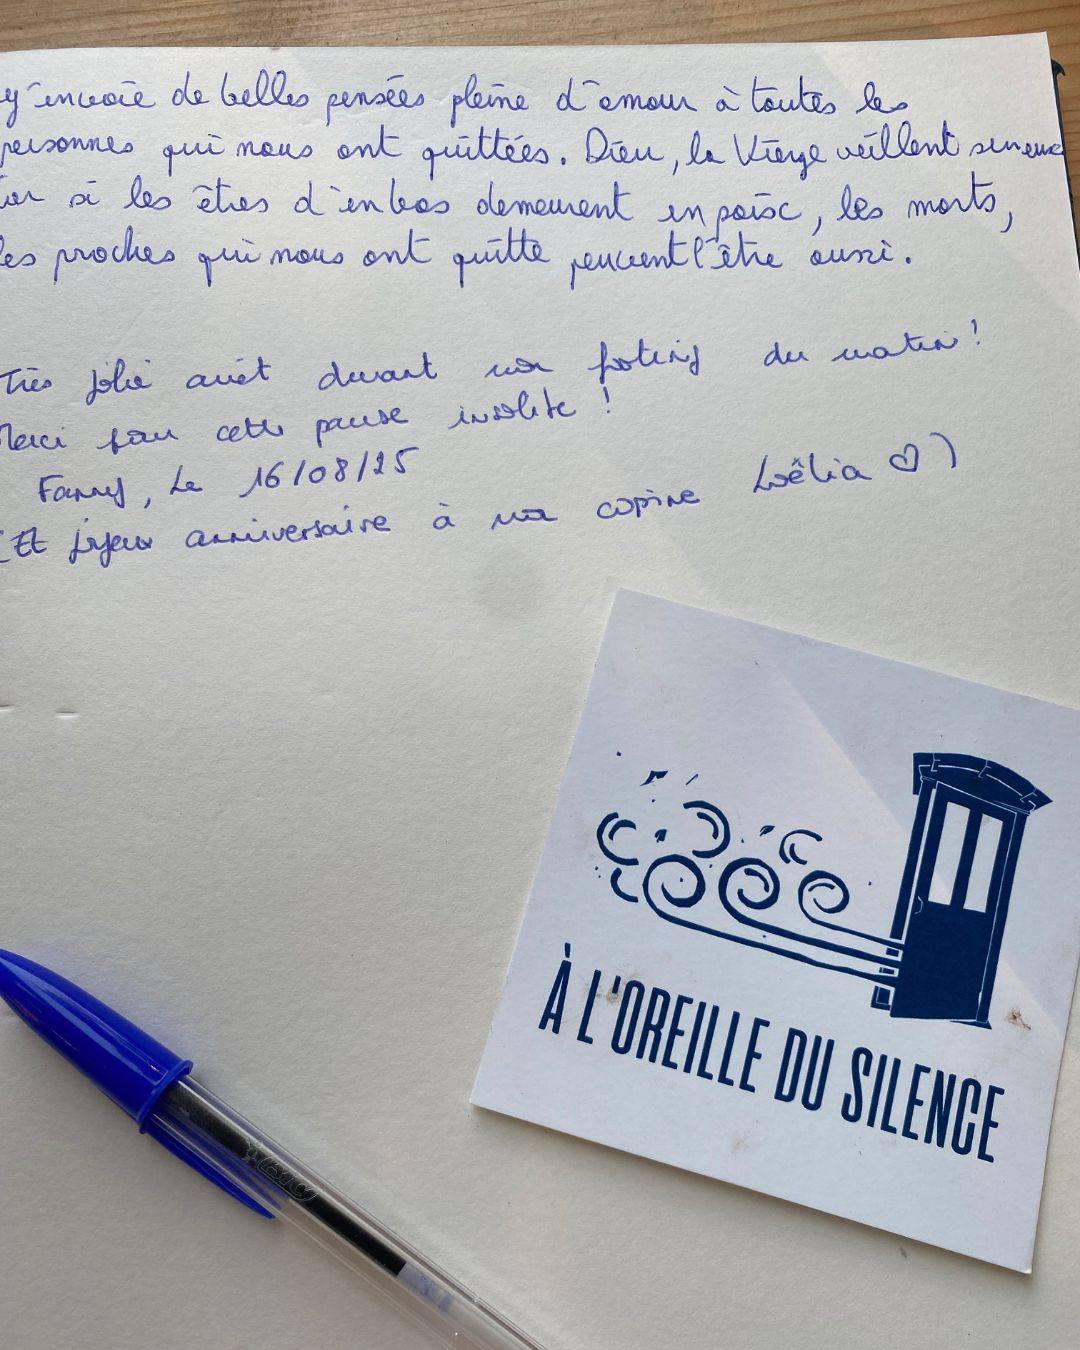 J'envoie de belles pensées pleine d'amour à toutes les
personnes qui nous ont quittées. Dieu, la Vierge veillent sur eux
Car si les êtres d'en bas demeurent en paix, les morts,
les proches qui nous ont quitté peuvent l'être aussi.
Très jolie arrêt durant mon footing du matin !
Merci pour cette pause insolite !
Fanny, Le 16/08/25
(Et joyeux anniversaire à ma copine Loêlia ♡)
BIC
À L'OREILLE DU SILENCE